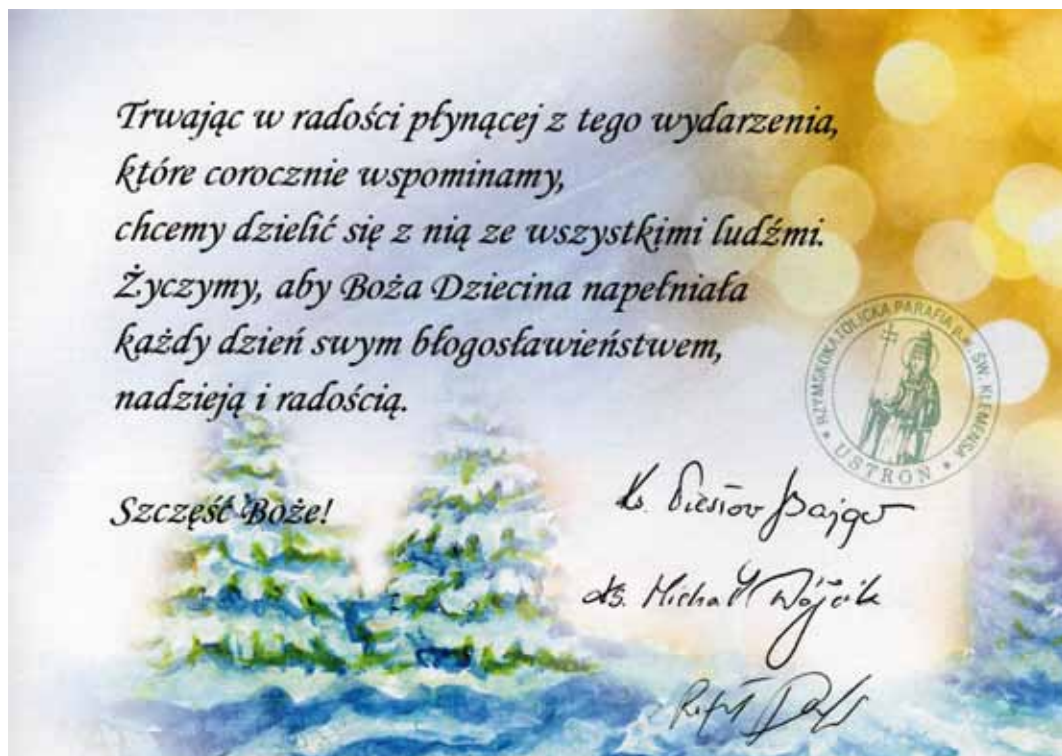 Trwając w radości płynącej z tego wydarzenia,
które corocznie wspominamy,
chcemy dzielić się z nią ze wszystkimi ludźmi.
Życzymy, aby Boża Dziecina napełniała
każdy dzień swym błogosławieństwem,
nadzieją i radością.
RZYMSKOKATOLICKA PARAFIA P.W. ŚW. KLEMENSA
USTROŃ
Szczęść Boże!
Ks. Wiesław Bajger
Ks. Michał Wójcik
Rafał